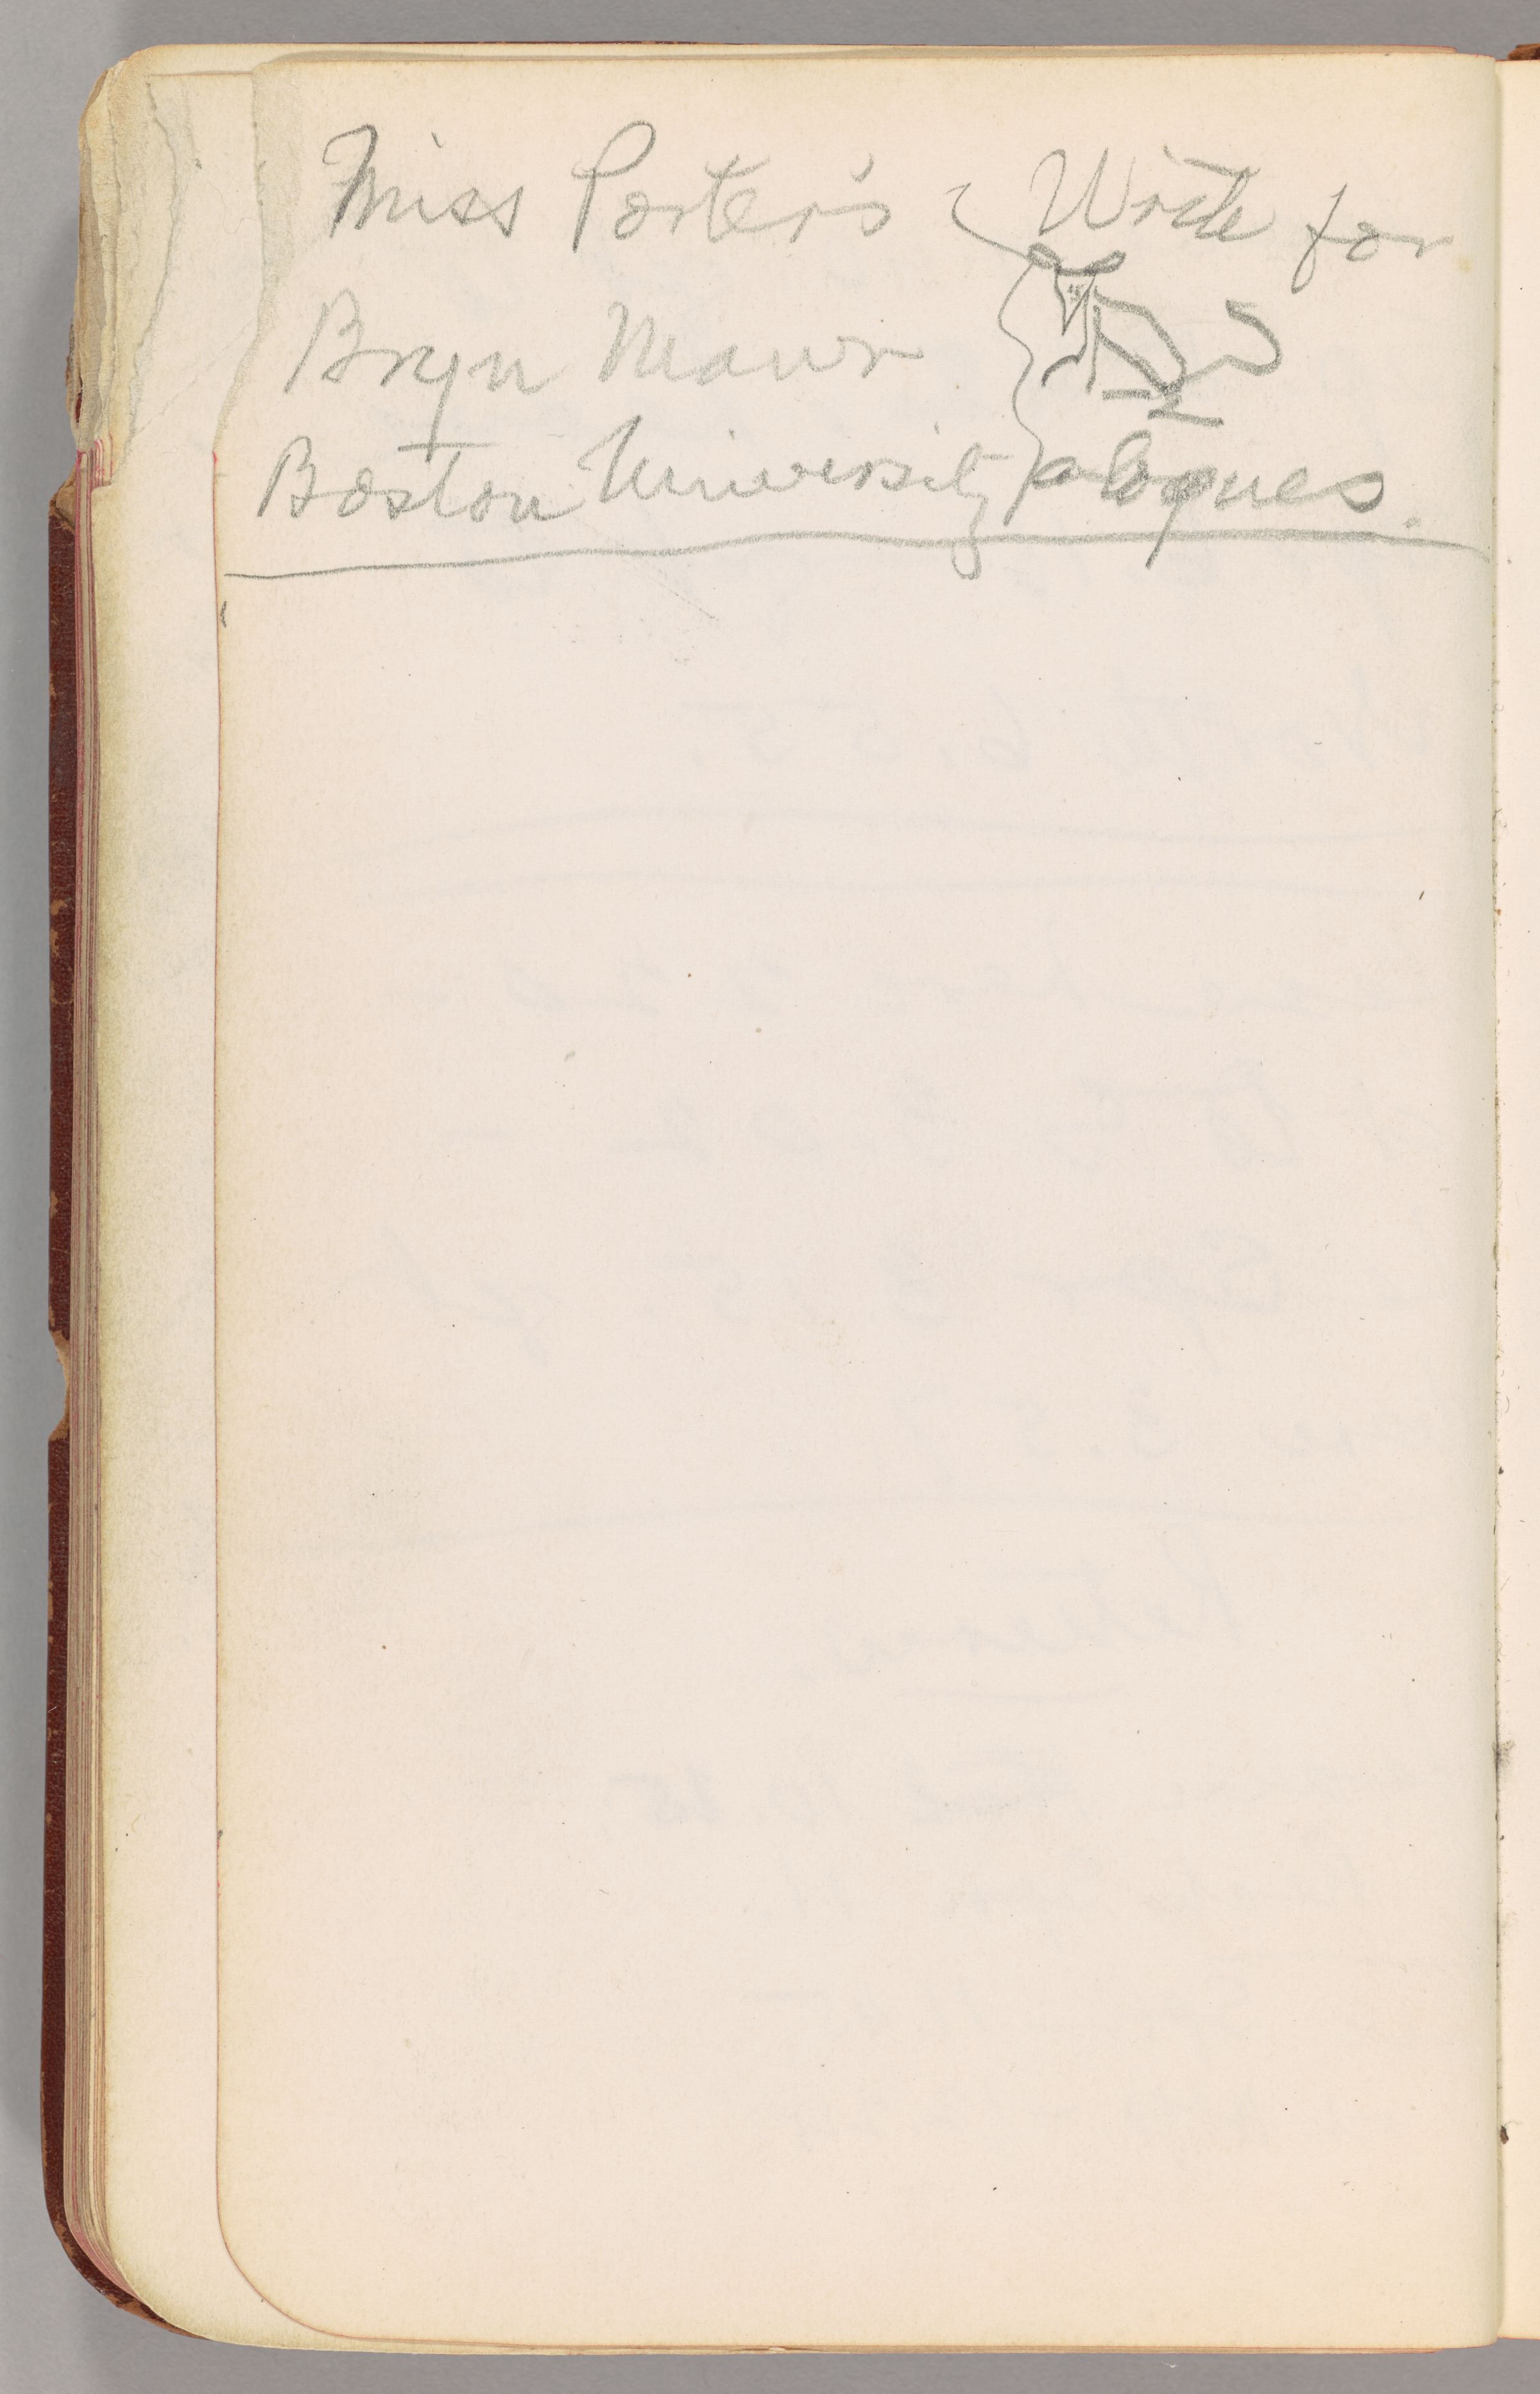 Miss Porter's } Write for
Bryn Mawr
Boston University